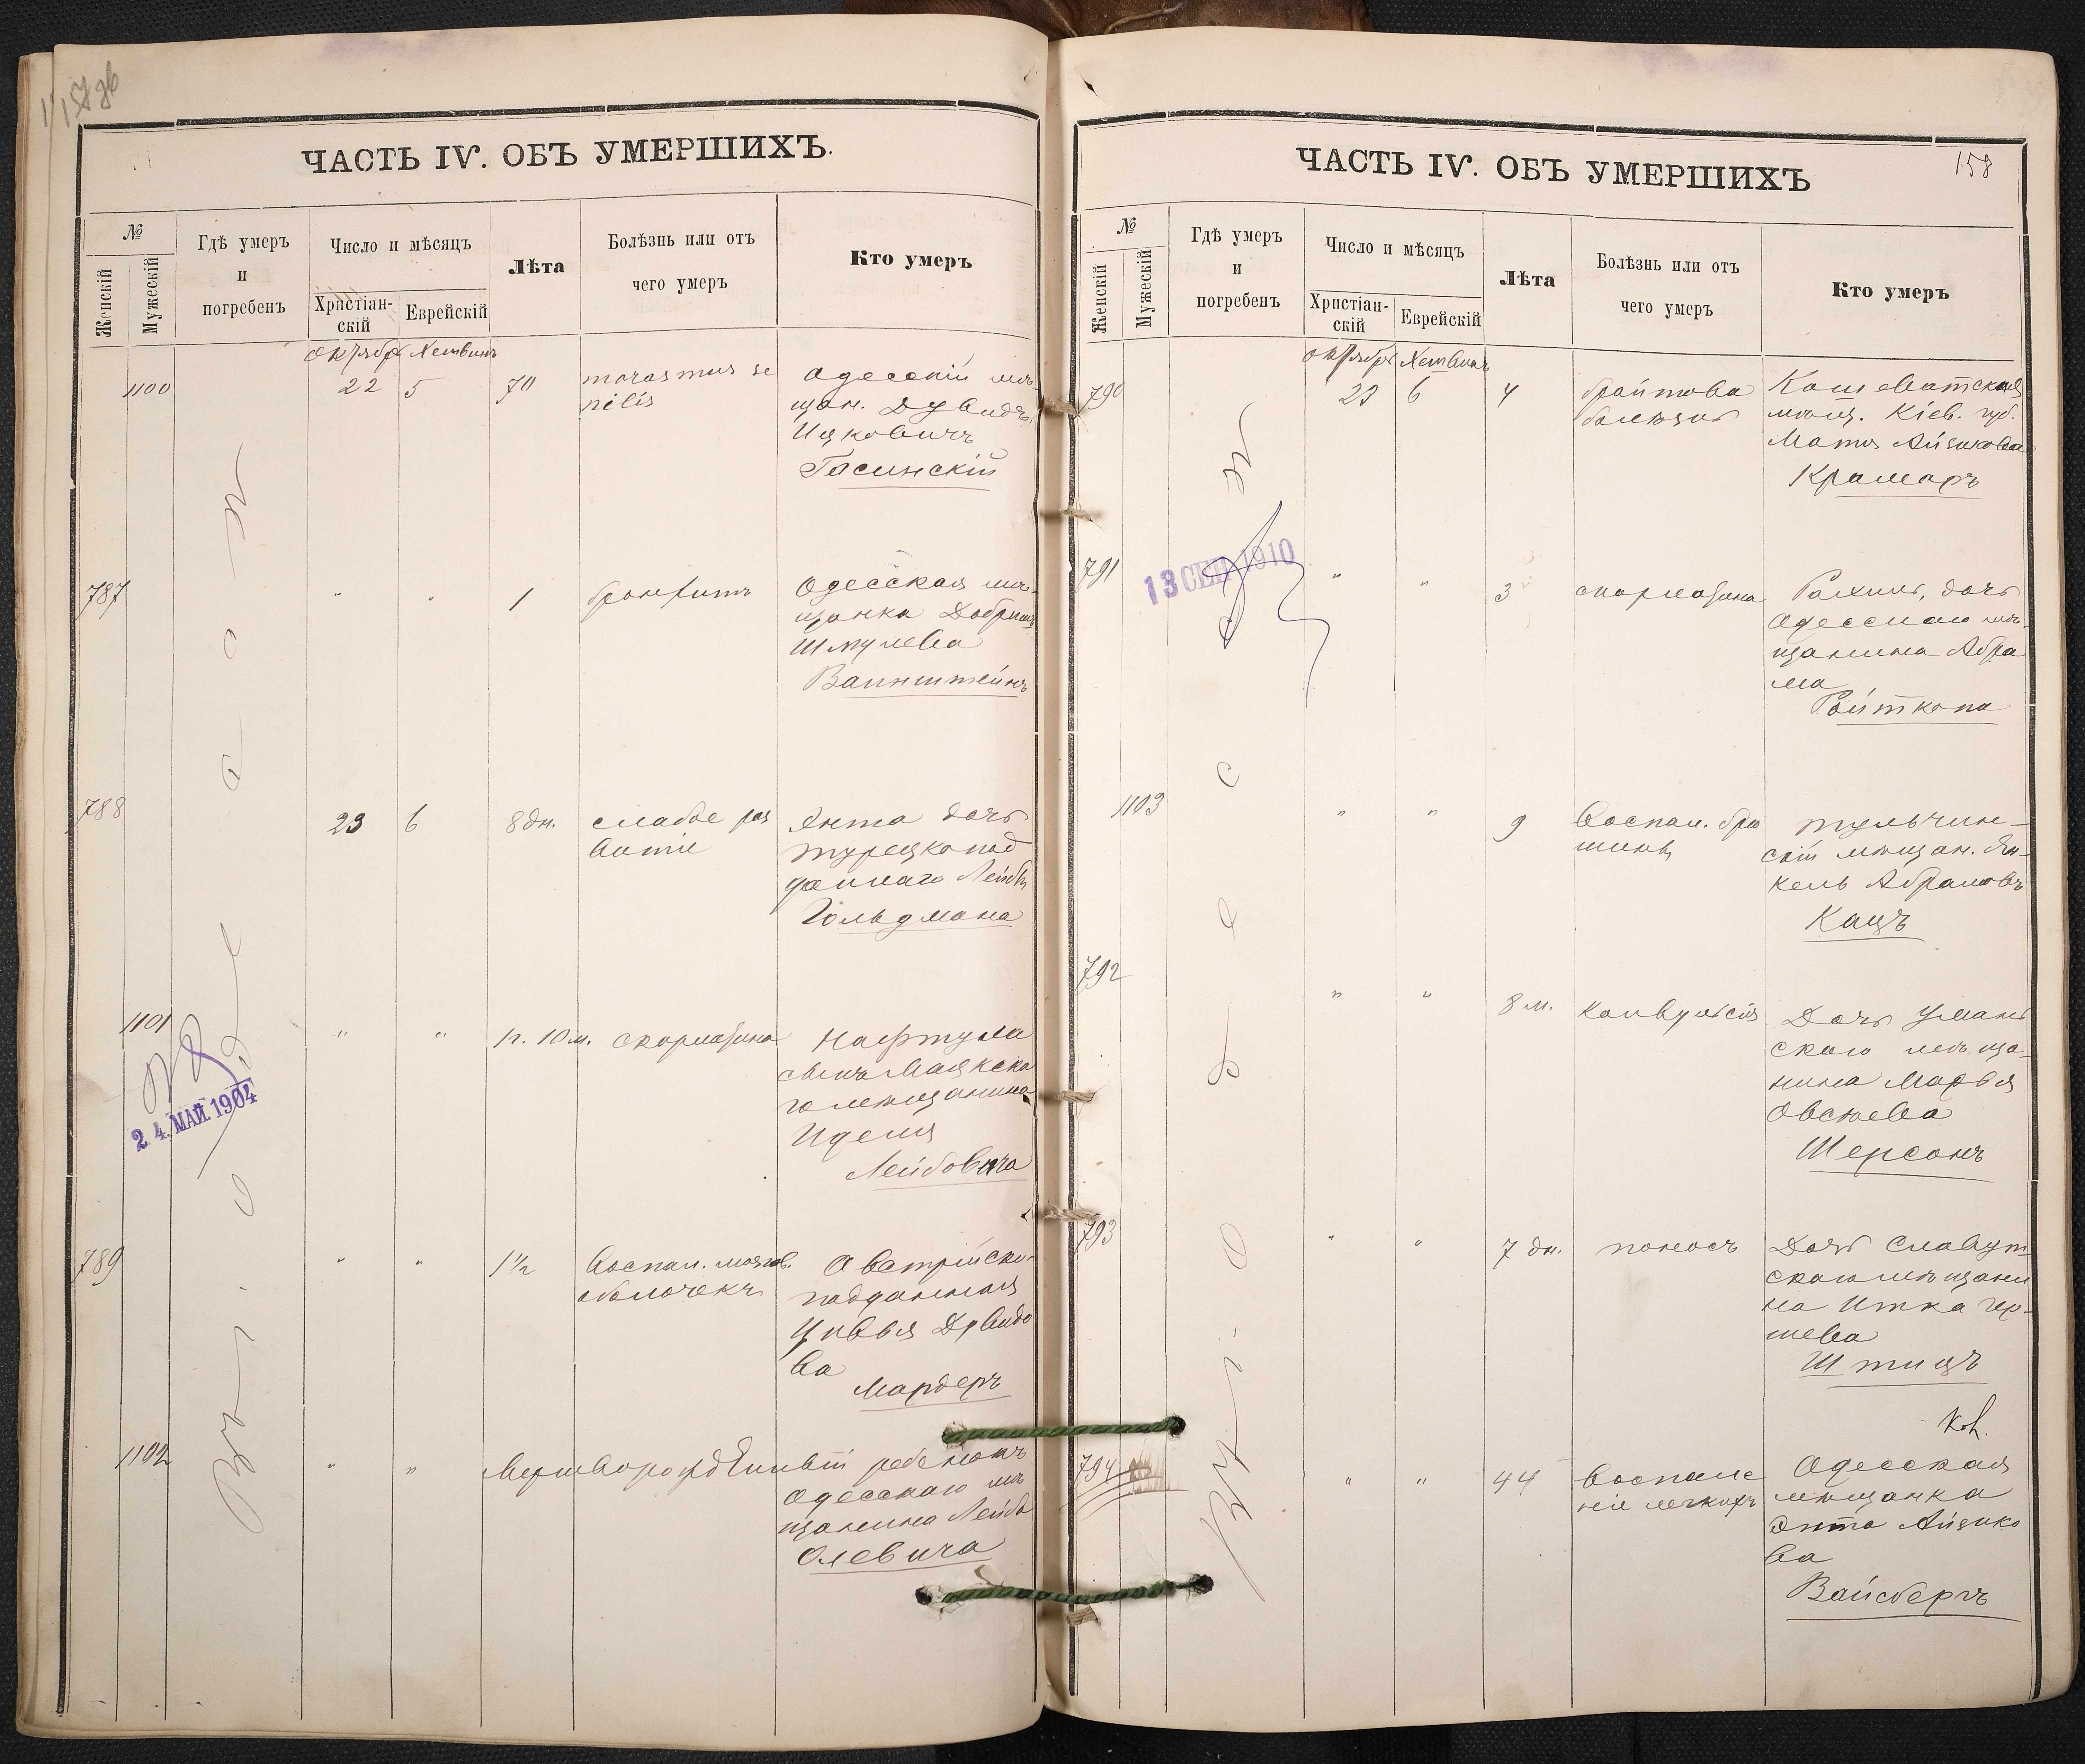 157 об
ЧАСТЬ IV. ОБЪ УМЕРШИХЪ.
№
Женскій
Мужескій
Гдѣ умеръ
и
погребенъ
Число и мѣсяцъ
Христіан-
скій
Еврейскій
Лѣта
Болѣзнь или отъ
чего умеръ
Кто умеръ
Въ Одессѣ
октябрь Хешвинъ
1100 22 5 70
marasmus se
nilis
Одесскій мѣ-
щан. Дувидъ
Ицковичъ
Гасинскій
787 " " 1 бронхитъ
Одесская мѣ-
щанка Добриш
Шмулева
Ваинштейнъ
788 23 6 8 дн.
слабое раз
витіе
Энта дочь
турецкопод
даннаго Лейбы
Гольдмана
1101 " " 1 г. 10 м. скарлатина
Нафтула
сынъ Маякска
го мѣщанина
Иделя
Лейбовича
24 МАЙ 1904
789 " " 1½
Воспал. мозгов.
оболочекъ
Австрійско-
подданная
Цивья Дувидо
ва
Мардеръ
1102 " " Мертворожденный ребенокъ
Одесскаго мѣ
щанина Лейба
Олевича
ЧАСТЬ IV. ОБЪ УМЕРШИХЪ
158
№
Женскій
Мужескій
Гдѣ умеръ
и
погребенъ
Число и мѣсяцъ
Христіан-
скій
Еврейскій
Лѣта
Болѣзнь или отъ
чего умеръ
Кто умеръ
Въ Одессѣ
октябрь Хешвинъ
790 23 6 4
брайтова
болѣзнь
Кошеватская
мѣщ. Кіев. губ.
Матя Айзикова
Крамаръ
13 СЕН 1910
791 " " 3 скарлатина
Рахиль, дочь
Одесскаго мѣ-
щанина Абра
ма
Ройткопа
1103 " " 9
Воспал. брю
шины
Тульчин-
скій мѣщан. Ян-
кель Абрамовъ
Кацъ
792 " " 8 м. Конвульсія
Дочь Уман
скаго мѣща-
нина Марья
Овсѣева
Шерсонъ
793 " " 7 дн. поносъ
Дочь Славут-
скаго мѣщани
на Итка Гер-
шева
Штицъ
794 " " 44
Воспале
ніе легкихъ
Одесская
мѣщанка
Энта Айзико
ва
Вайсбергъ